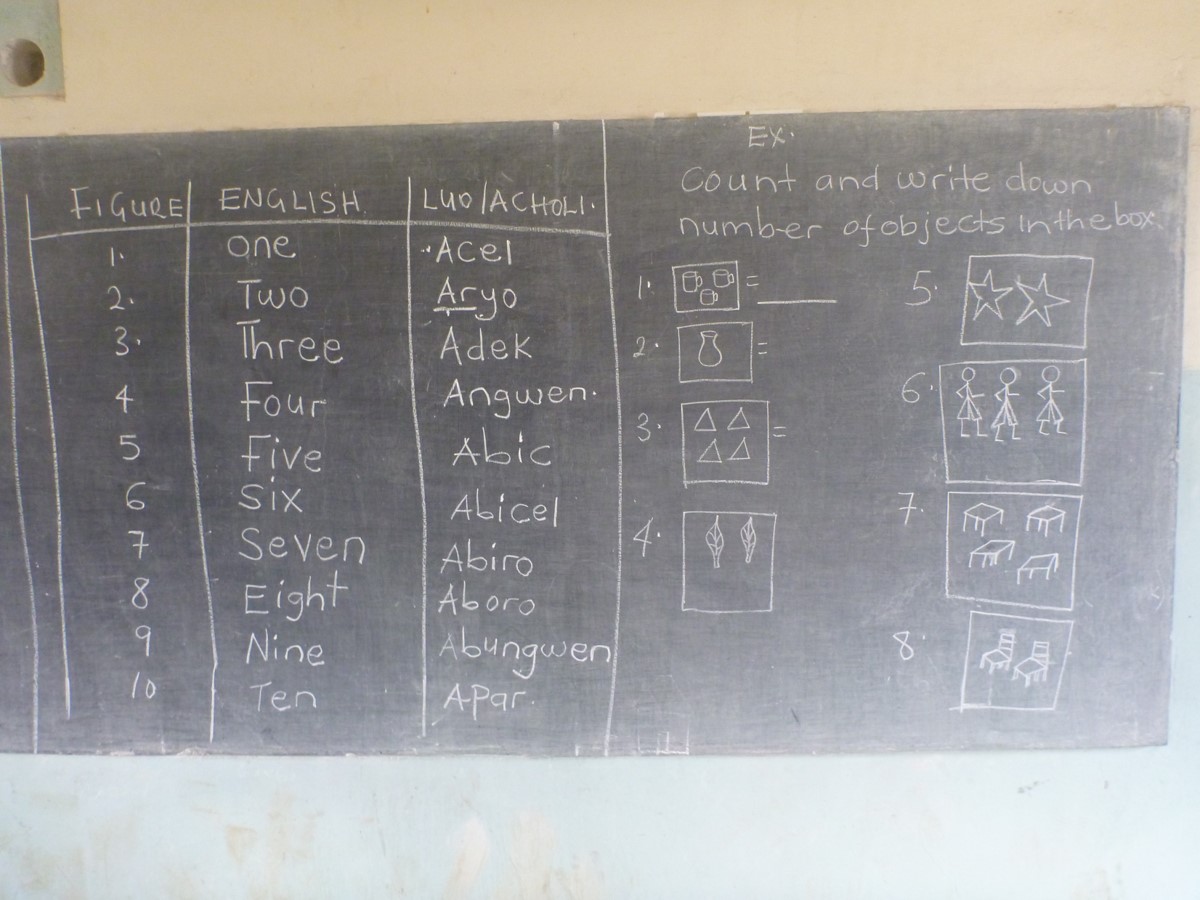 FIGURE ENGLISH. LUO/ACHOLI.
1. one Acel
2. Two Aryo
3. Three Adek
4 Four Angwen.
5 Five Abic
6 Six Abicel
7 Seven Abiro
8 Eight Aboro
9 Nine Abungwen
10 Ten Apar.
EX.
Count and write down
number of objects in the box.
1. = ____
2. =
3. =
4.
5.
6.
7.
8.